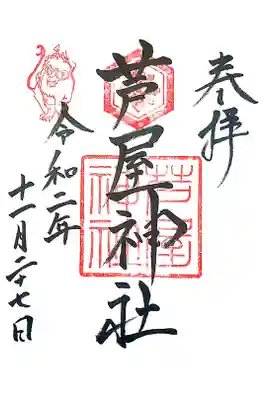 奉拝
芦屋神社
令和二年
十一月二十七日